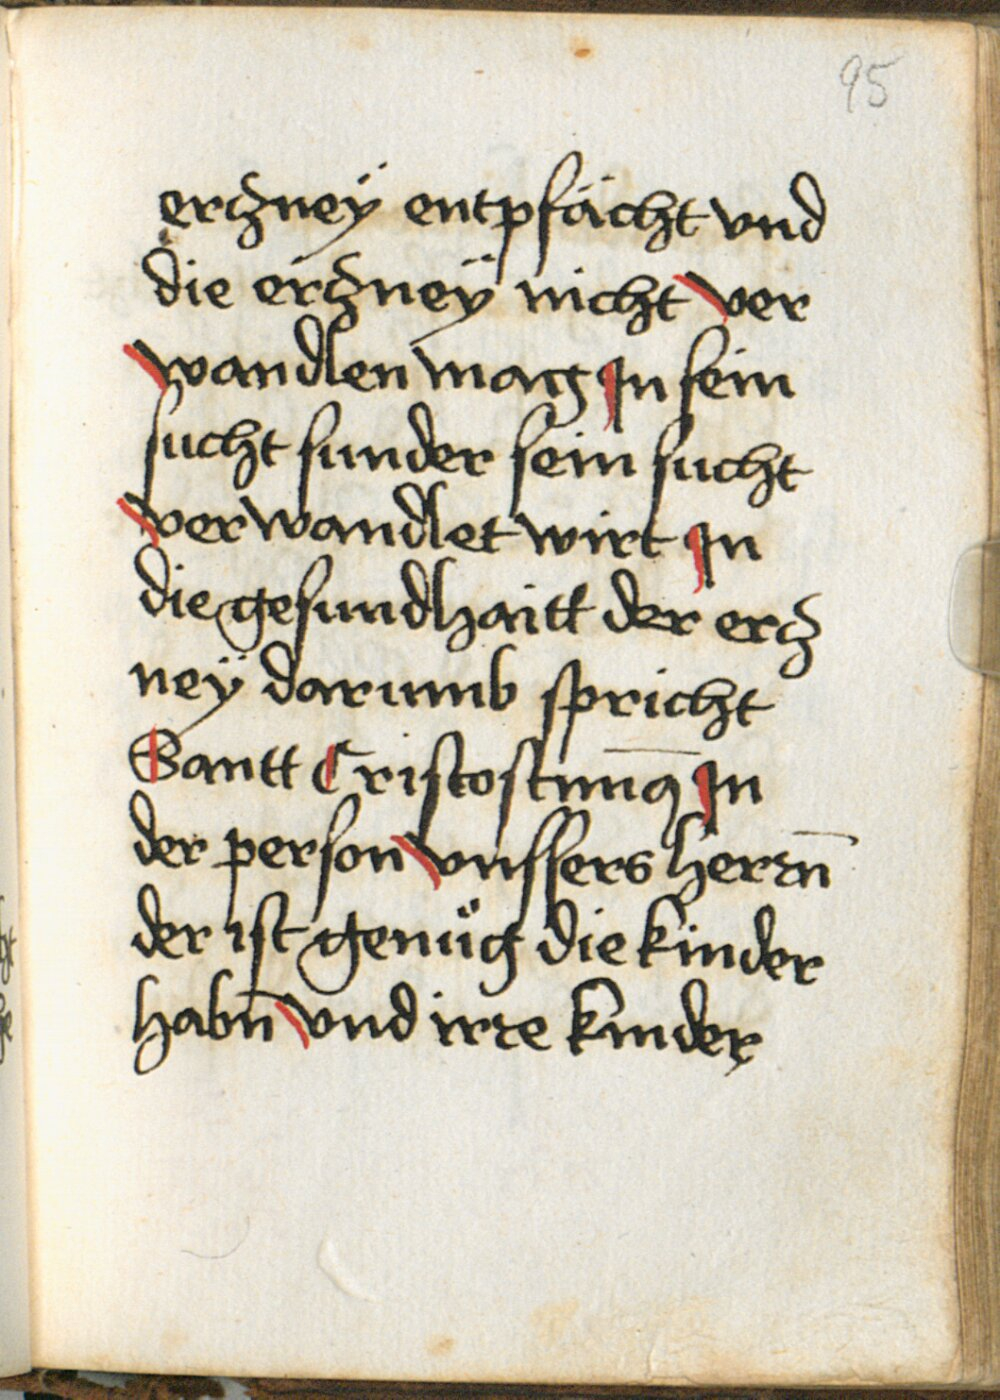 95
erczneÿ entpfächt vnd
die erczneÿ nicht ver
wandlen mag In sein
sucht sunder sein sucht
verwandlet wirt In
die gesundhaitt der ercz
neÿ darumb spricht
Santt Cristostm̄q In
der person vnssers herrn̄
der ist genůg die kinder
habn̄ vnd irre kinder